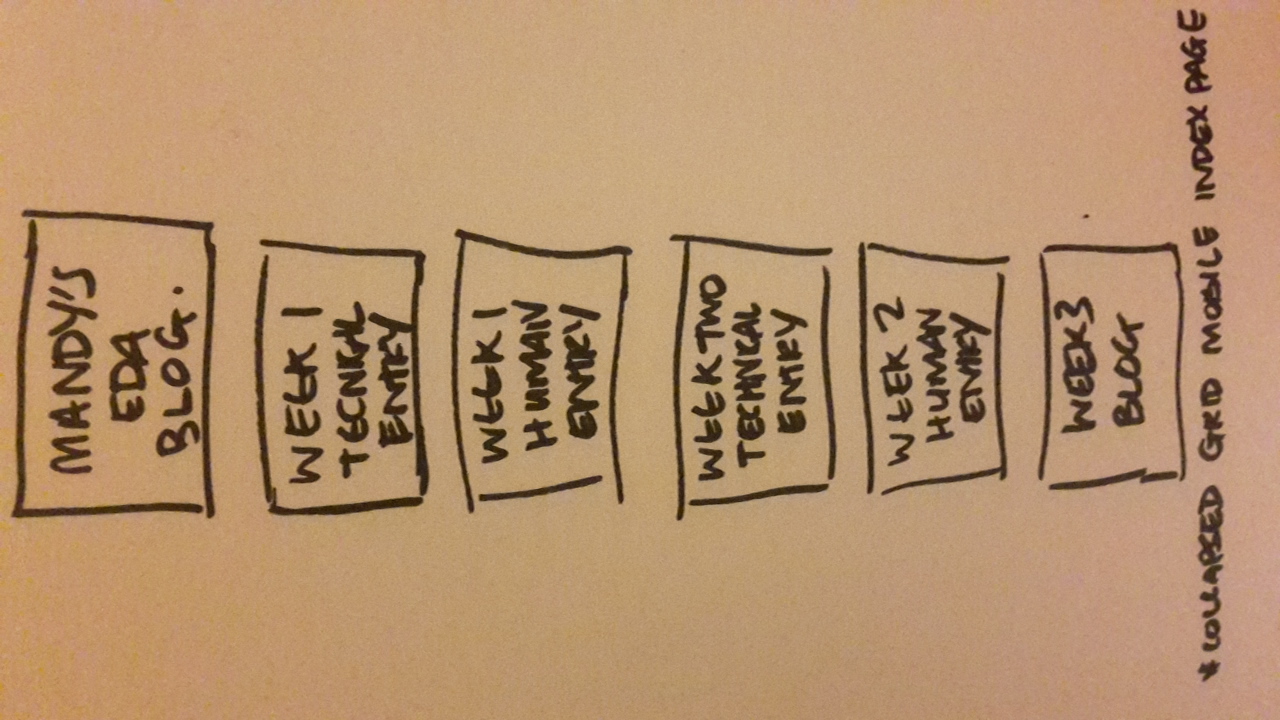 MANDY'S
EDA
BLOG.
WEEK 1
TECNICAL
ENTRY
WEEK 1
HUMAN
ENTRY
WEEK TWO
TECHNICAL
ENTRY
WEEK 2
HUMAN
ENTRY
WEEK 3
BLOG
*COLLAPSED GRID MOBILE INDEX PAGE